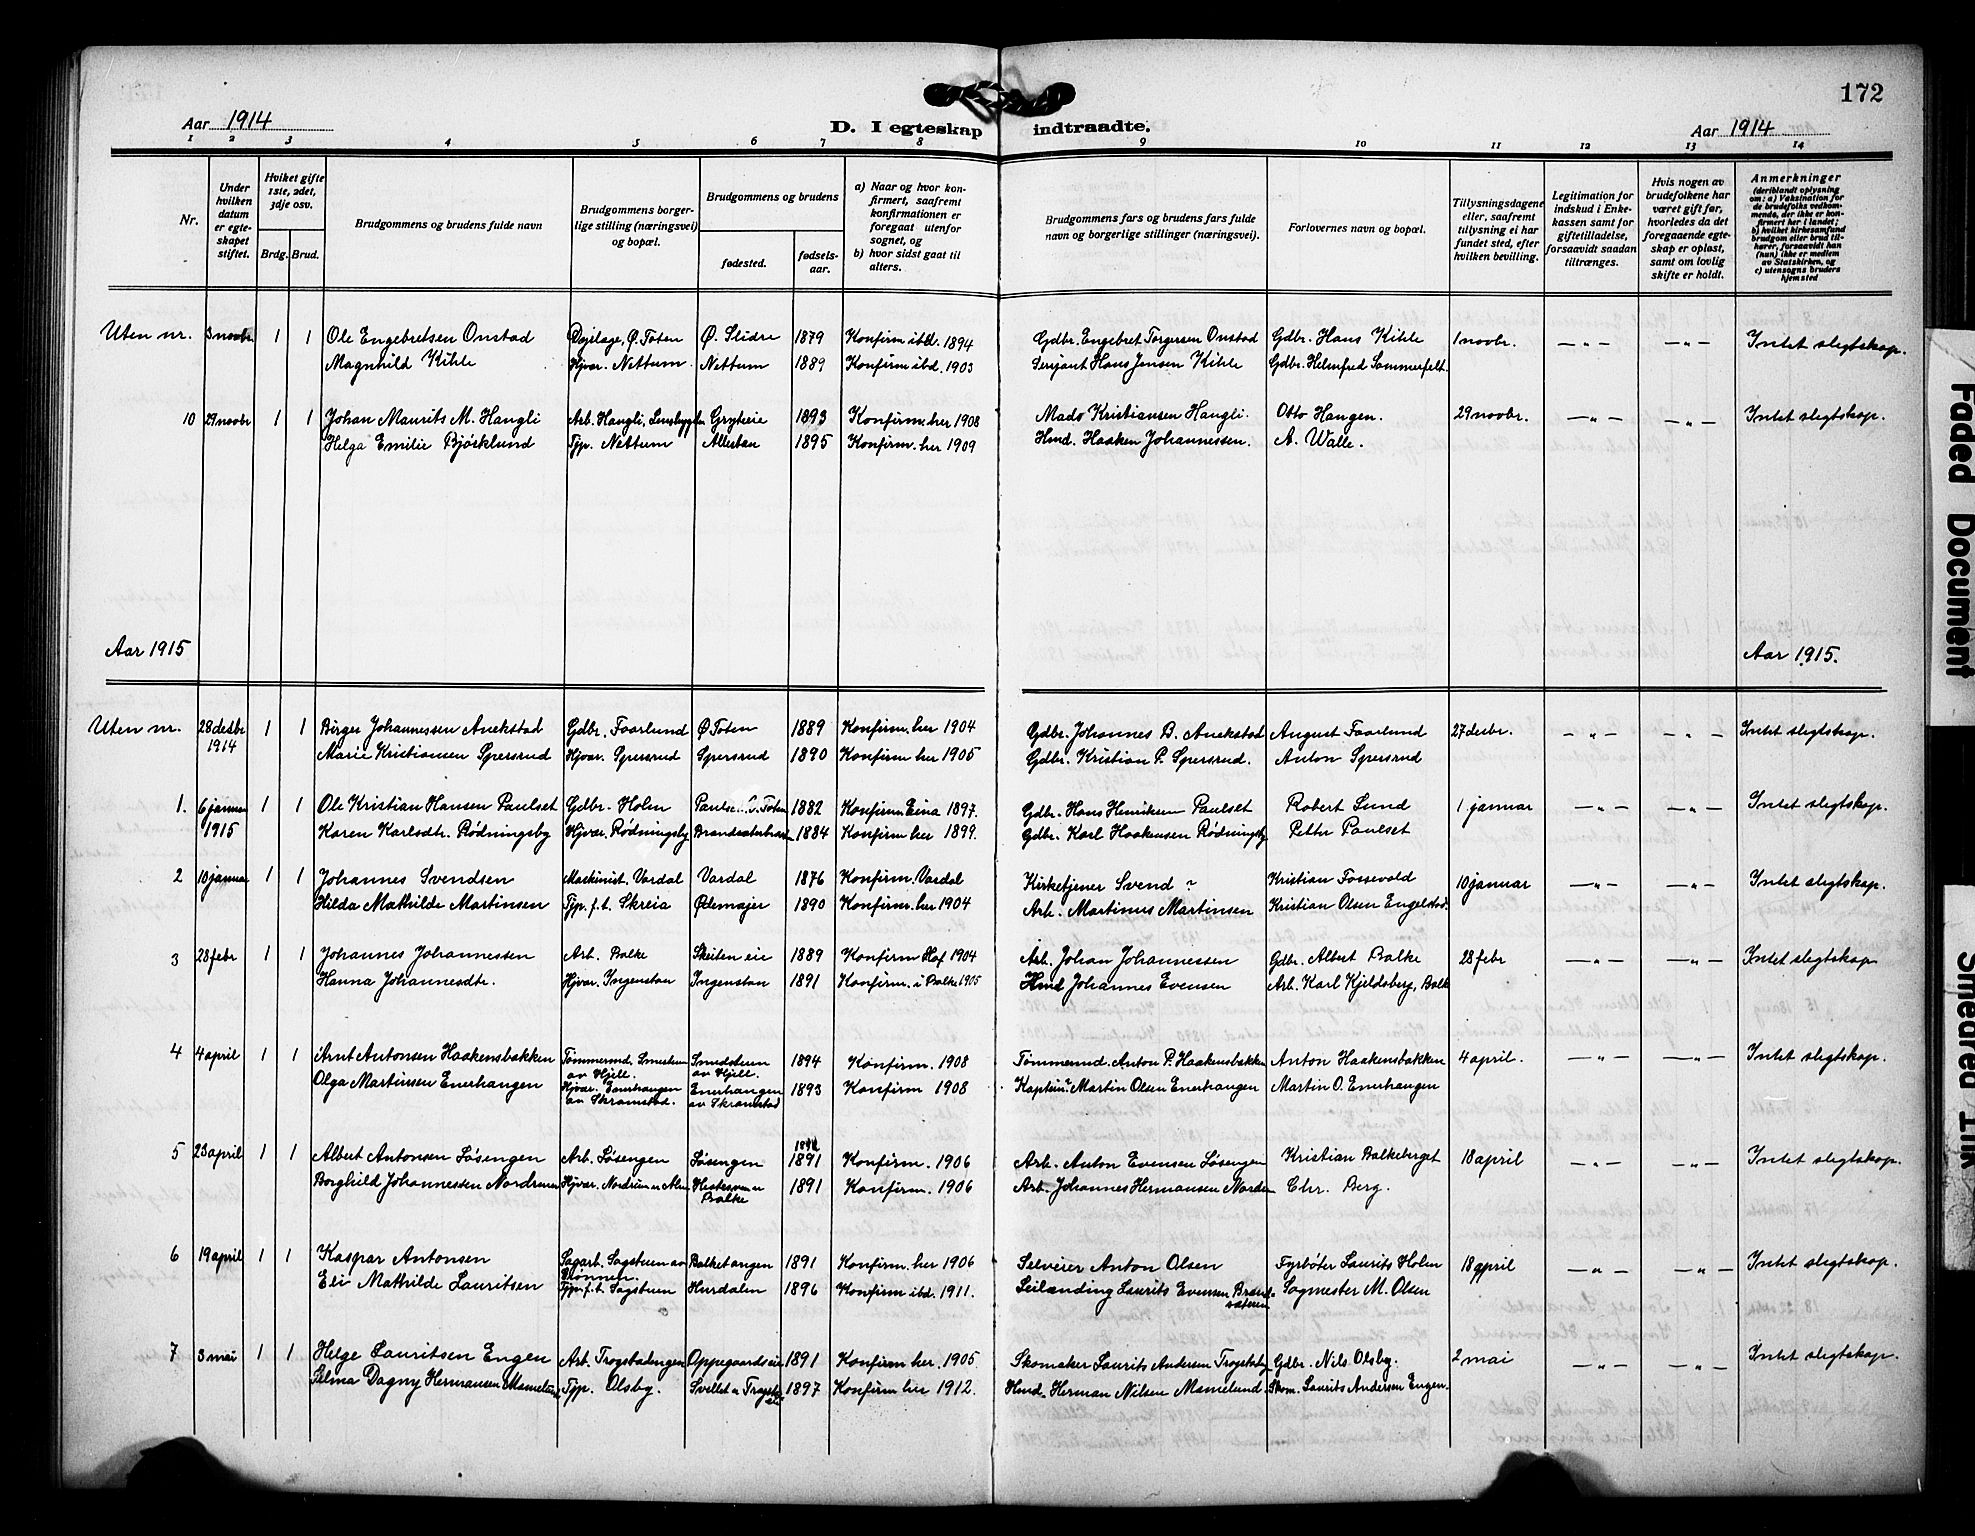 172
Aar 1914
D. I egteskap indtraadte.
Aar 1914
1 2 3 4 5 6 7 8 9 10 11 12 13 14
Nr.
Under hvilken datum er egteskapet stiftet.
Hviket gifte 1ste, 2det, 3dje osv.
Brdg. Brud.
Brudgommens og brudens fulde navn
Brudgommens borgerlige stilling (næringsvei) og bopæl.
Brudgommens og brudens
fødested. fødselsaar.
a) Naar og hvor konfirmert, saafremt konfirmationen er foregaat utenfor sognet, og
b) hvor sidst gaat til alters.
Brudgommens fars og brudens fars fulde navn og borgerlige stillinger (næringsvei).
Forlovernes navn og bopæl.
Tillysningsdagene eller, saafremt tillysning ei har fundet sted, efter hvilken bevilling.
Legitimation for indskud i Enkekassen samt for giftetilladelse, forsaavidt saadan tiltrænges.
Hvis nogen av brudefolkene har været gift før, hvorledes da det foregaaende egteskap er opløst, samt om lovlig skifte er holdt.
Anmerkninger
(deriblandt oplysning om: a) Vaksination for de brudefolks vedkommende, der ikke er konfirmert her i landet; b) hvilket kirkesamfund brudgom eller brud tilhører, forsaavidt han (hun) ikke er medlem av Statskirken, og c) utensogns bruders hjemsted
Uten nr. 3 novbr. 1 1 Ole Engebretsen Onstad Ø. Toten Ø. Slidre 1879 Konfirm ibd. 1894 Gdbr. Engebret Torgersen Onstad Gdbr. Hans Kihle 1 novbr. — „ — — „ — Intet slegtskap.
Magnhild Kihle Hjvær. Nettum Nettum 1889 Konfirm ibd. 1903 Serjant Hans Jensen Kihle Gdbr. Helmfred Sommerfelt
10 29 novbr 1 1 Johan Maurits M. Hangli Arb. Hangli, 1893 Konfirm. her 1908 Mads Kristiansen Hangli. Otto Hangen. 29 novbr. — „ — — „ — Intet slegtskap.
Helga Emilie Bjørklund Tjp. Nettum Allestau 1895 Konfirm. her 1909 Hmd. Haaken Johannessen. A. Walle.
Aar 1915
Aar 1915.
Uten nr. 28 decbr 1914 1 1 Birger Johannessen Anekstad Gdbr. Faarlund Ø Toten 1889 Konfirm. her 1904 Gdbr. Johannes B. Anekstad August Faarlund 27 decbr. — „ — — „ — Intet slegtskap.
Marie Kristiansen Spersrud Hjvær. Spersrud Spersrud 1890 Konfirm her 1905 Gdbr. Kristian P. Spersrud. Anton Spersrud
1. 6 januar 1915 1 1 Ole Kristian Hansen Paulset Gdbr. Holm Ø. Toten 1882 Konfirm. Eina 1897. Gdbr. Hans Henriksen Paulset Robert Lund 1 januar — „ — — „ — Intet slegtskap.
Karen Karlsdtr. Rødningsby Hjvær. Rødningsby 1884 Konfirm her 1899. Gdbr. Karl Haakensen Rødningsby Petter Paulset
2 10 januar 1 1 Johannes Svendsen Maskinist. Vardal Vardal 1876 Konfirm. Vardal Kirketjener Svend ? Kristian Fossevold 10 januar — „ — — „ — Intet slegtskap.
Hilda Mathilde Martinsen Tjp. f.t. Skreia Ødemajer 1890 Konfirm. her 1904 Arb. Martinus Martinsen Kristian Olsen Engelstad.
3 28 febr 1 1 Johannes Johannessen Arb. Balke Skeilen eie 1889 Konfirm Hof 1904 Arb. Johan Johannessen Gdbr. Albert Balke 28 febr — „ — — „ — Intet slegtskap
Hanna Johannesdtr. Hjvær. Ingenstan Ingenstan 1891 Konfirm. i Balke 1905 Hmd Johannes Evensen Arb. Karl Kjeldsberg, Balk
4 4 april 1 1 Arnt Antonsen Haakensbakken Tømmermd. av Hjell. av Hjell 1894 Konfirm. 1908 Tømmermd. Anton P. Haakensbakken Anton Haakensbakken 4 april. — „ — — „ — Intet slegtskap.
Olga Martinsen Enerhangen Hjvær. Enerhangen av Skramstad. Enerhangen av Skramstad 1893 Konfirm 1908 Kaptein? Martin Olsen Enerhangen Martin O. Enerhangen
5 23 april 1 1 Albert Antonsen Løsengen Arb. Løsengen Løsengen 1891 Konfirm. 1906 Arb. Anton Evensen Løsengen Kristian Balkeberget 18 april — „ — — „ — Intet slegtskap.
Borghild Johannessen Nordrum Hjvær. Balke 1891 Konfirm. 1906 Arb. Johannes Hermansen Chr. Berg.
6 19 april 1 1 Kaspar Antonsen Sagarb. Sagstuen av Balketangen 1891 Konfirm. her 1906 Selveier Anton Olsen Fyrbøter Laurits Holm 18 april — „ — — „ — Intet slegtskap.
Eli Mathilde Lauritsen Tjp. f.t. Sagstuen Hurdalen 1896 Konfirm ibd. 1911. Laurits Evensen Brandsæteren Sagmester M. Olsen
7 3 mai 1 1 Helge Lauritsen Engen Arb. Trogstadengen Oppegaardseie 1891 Konfirm her. 1905. Skomaker Laurits Andersen Gdbr. Nils Olsby. 2 mai — „ — — „ — Intet slegtskap.
Selma Dagny Hermansen Mamelund Tjp. Olsby. 1897 Konfirm her 1912. Hmd. Herman Nilsen Mamelund. Skom. Laurits Andersen Engen.
Faded Document
Smeared Ink